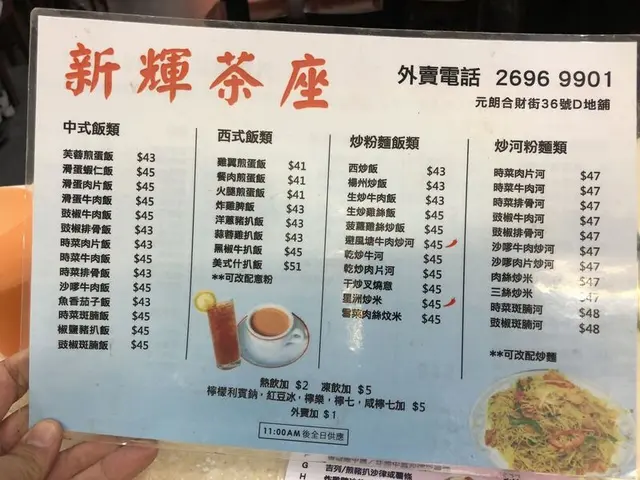 新輝茶座
外賣電話 2696 9901
元朗合財街36號D地舖
中式飯類
芙蓉煎蛋飯 $43
滑蛋蝦仁飯 $45
滑蛋肉片飯 $45
滑蛋牛肉飯 $45
豉椒牛肉飯 $45
豉椒排骨飯 $43
時菜肉片飯 $43
時菜牛肉飯 $45
時菜排骨飯 $43
沙嗲牛肉飯 $45
魚香茄子飯 $43
時菜斑腩飯 $45
椒鹽豬扒飯 $45
豉椒斑腩飯 $45
西式飯類
雞翼煎蛋飯 $41
餐肉煎蛋飯 $41
火腿煎蛋飯 $41
炸雞脾飯 $43
洋蔥豬扒飯 $43
蒜蓉雞扒飯 $43
黑椒牛扒飯 $45
美式什扒飯 $51
**可改配意粉
炒粉麵飯類
西炒飯 $43
楊州炒飯 $43
生炒牛肉飯 $45
生炒雞絲飯 $45
菠蘿雞絲炒飯 $45
避風塘牛肉炒河 $45
乾炒牛河 $45
乾炒肉片河 $45
干炒叉燒意 $45
星洲炒米 $45
雪菜肉絲炆米 $45
炒河粉麵類
時菜肉片河 $47
時菜牛肉河 $47
時菜排骨河 $47
豉椒牛肉河 $47
豉椒排骨河 $47
沙嗲牛肉炒河 $47
沙嗲肉片炒河 $47
肉絲炒米 $47
三絲炒米 $47
時菜斑腩河 $48
豉椒斑腩河 $48
**可改配炒麵
熱飲加 $2 凍飲加 $5
檸檬利賓納，紅豆冰，檸樂，檸七，咸檸七加 $5
外賣加 $1
11:00AM 後全日供應
G 吉列/煎豬扒沙律或薯條
H